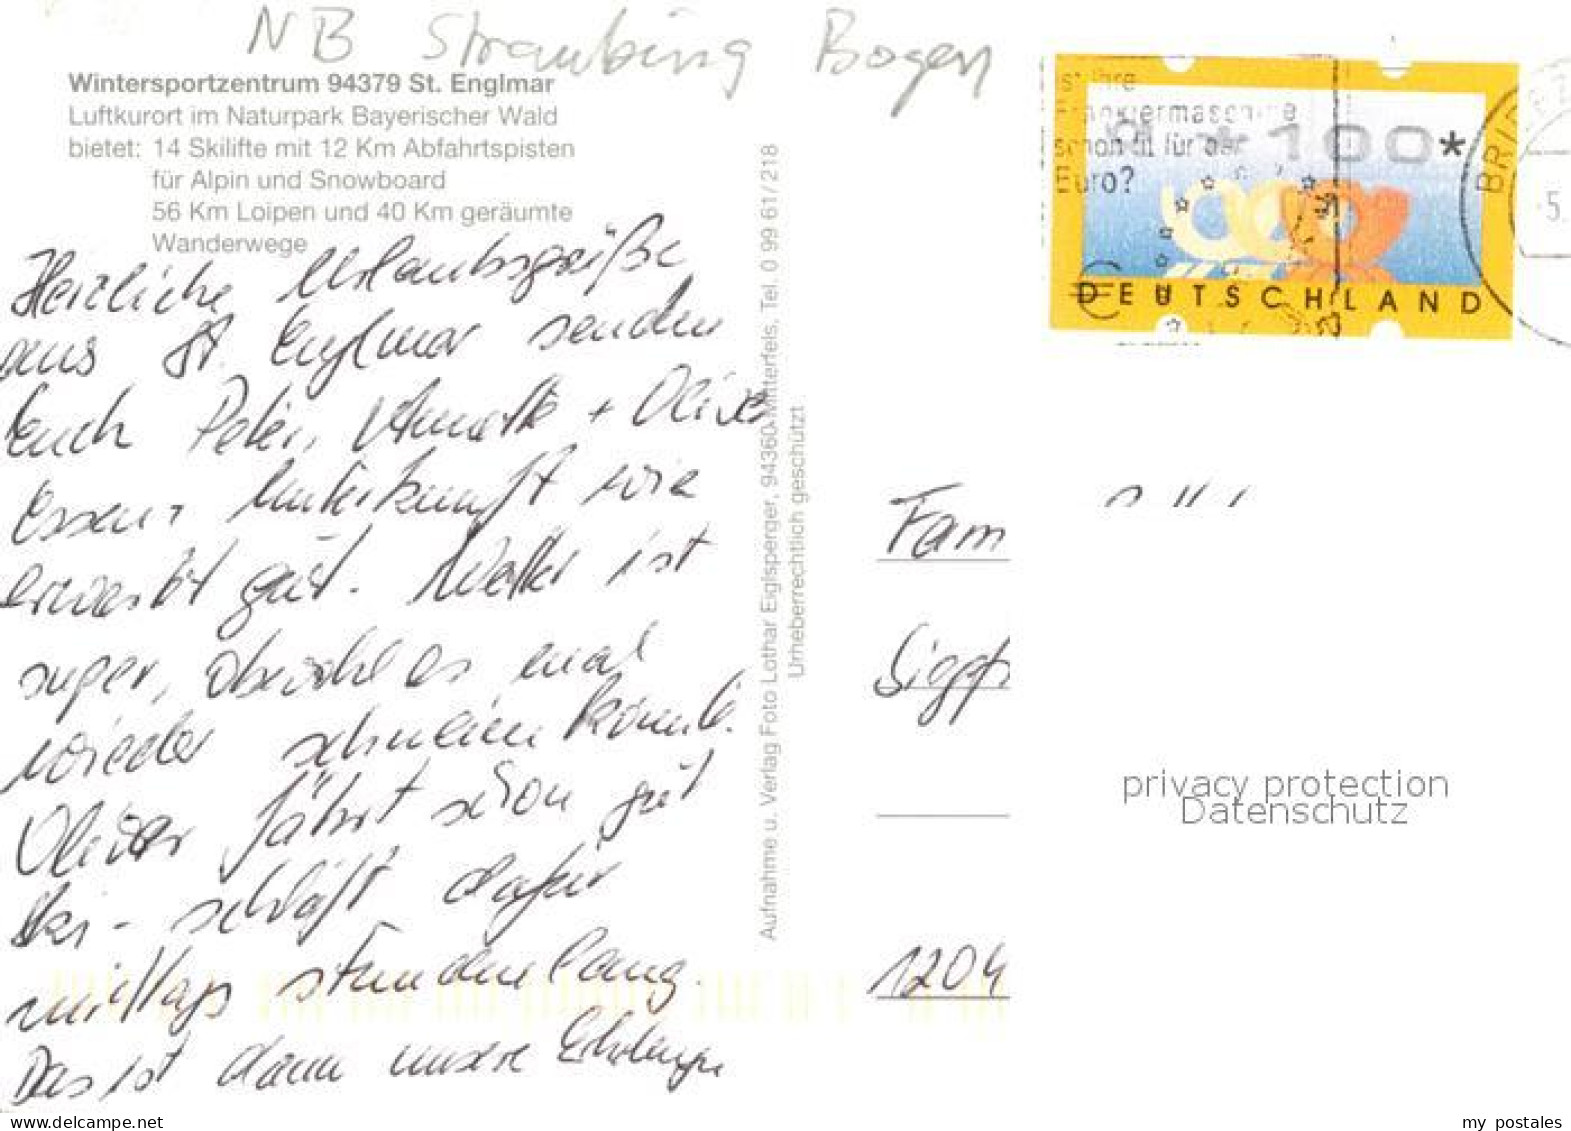 NB Straubing Bogen
Wintersportzentrum 94379 St. Englmar
Luftkurort im Naturpark Bayerischer Wald
bietet: 14 Skilifte mit 12 Km Abfahrtspisten
für Alpin und Snowboard
56 Km Loipen und 40 Km geräumte
Wanderwege
Herzliche Urlaubsgrüße
aus St. Englmar senden
Euch Peter, Annette + Oliver
Essen, Unterkunft wie
erwartet gut. Wetter ist
super, obwohl es mal
wieder schneien könnte.
Oliver fährt schon gut
Ski - schläft dafür
mittags stundenlang.
Das ist dann unsere Erholung
Aufnahme u. Verlag Foto Lothar Eiglsperger, 94360 Mitterfels, Tel. 0 99 61/218
Urheberrechtlich geschützt
st Ihre
Frankiermaschine
schon fit für den
Euro?
*100*
DEUTSCHLAND
BRIEFZ
5.
Fam
Siggf
1204
privacy protection
Datenschutz
my postales